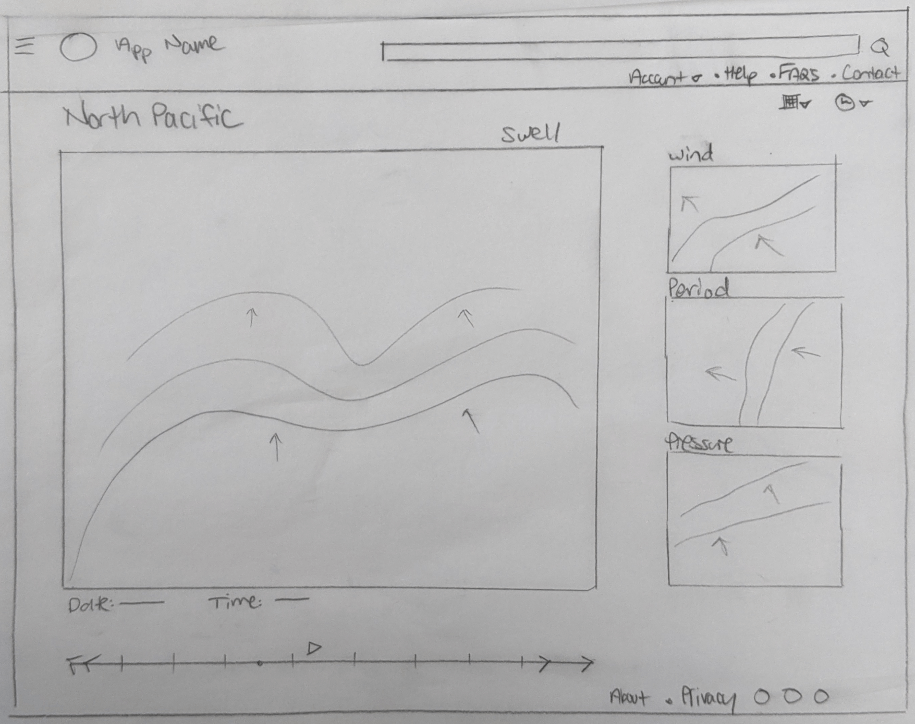 App Name
Account • Help • FAQS • Contact
North Pacific
Swell
wind
Period
Pressure
Date: Time:
About • Privacy